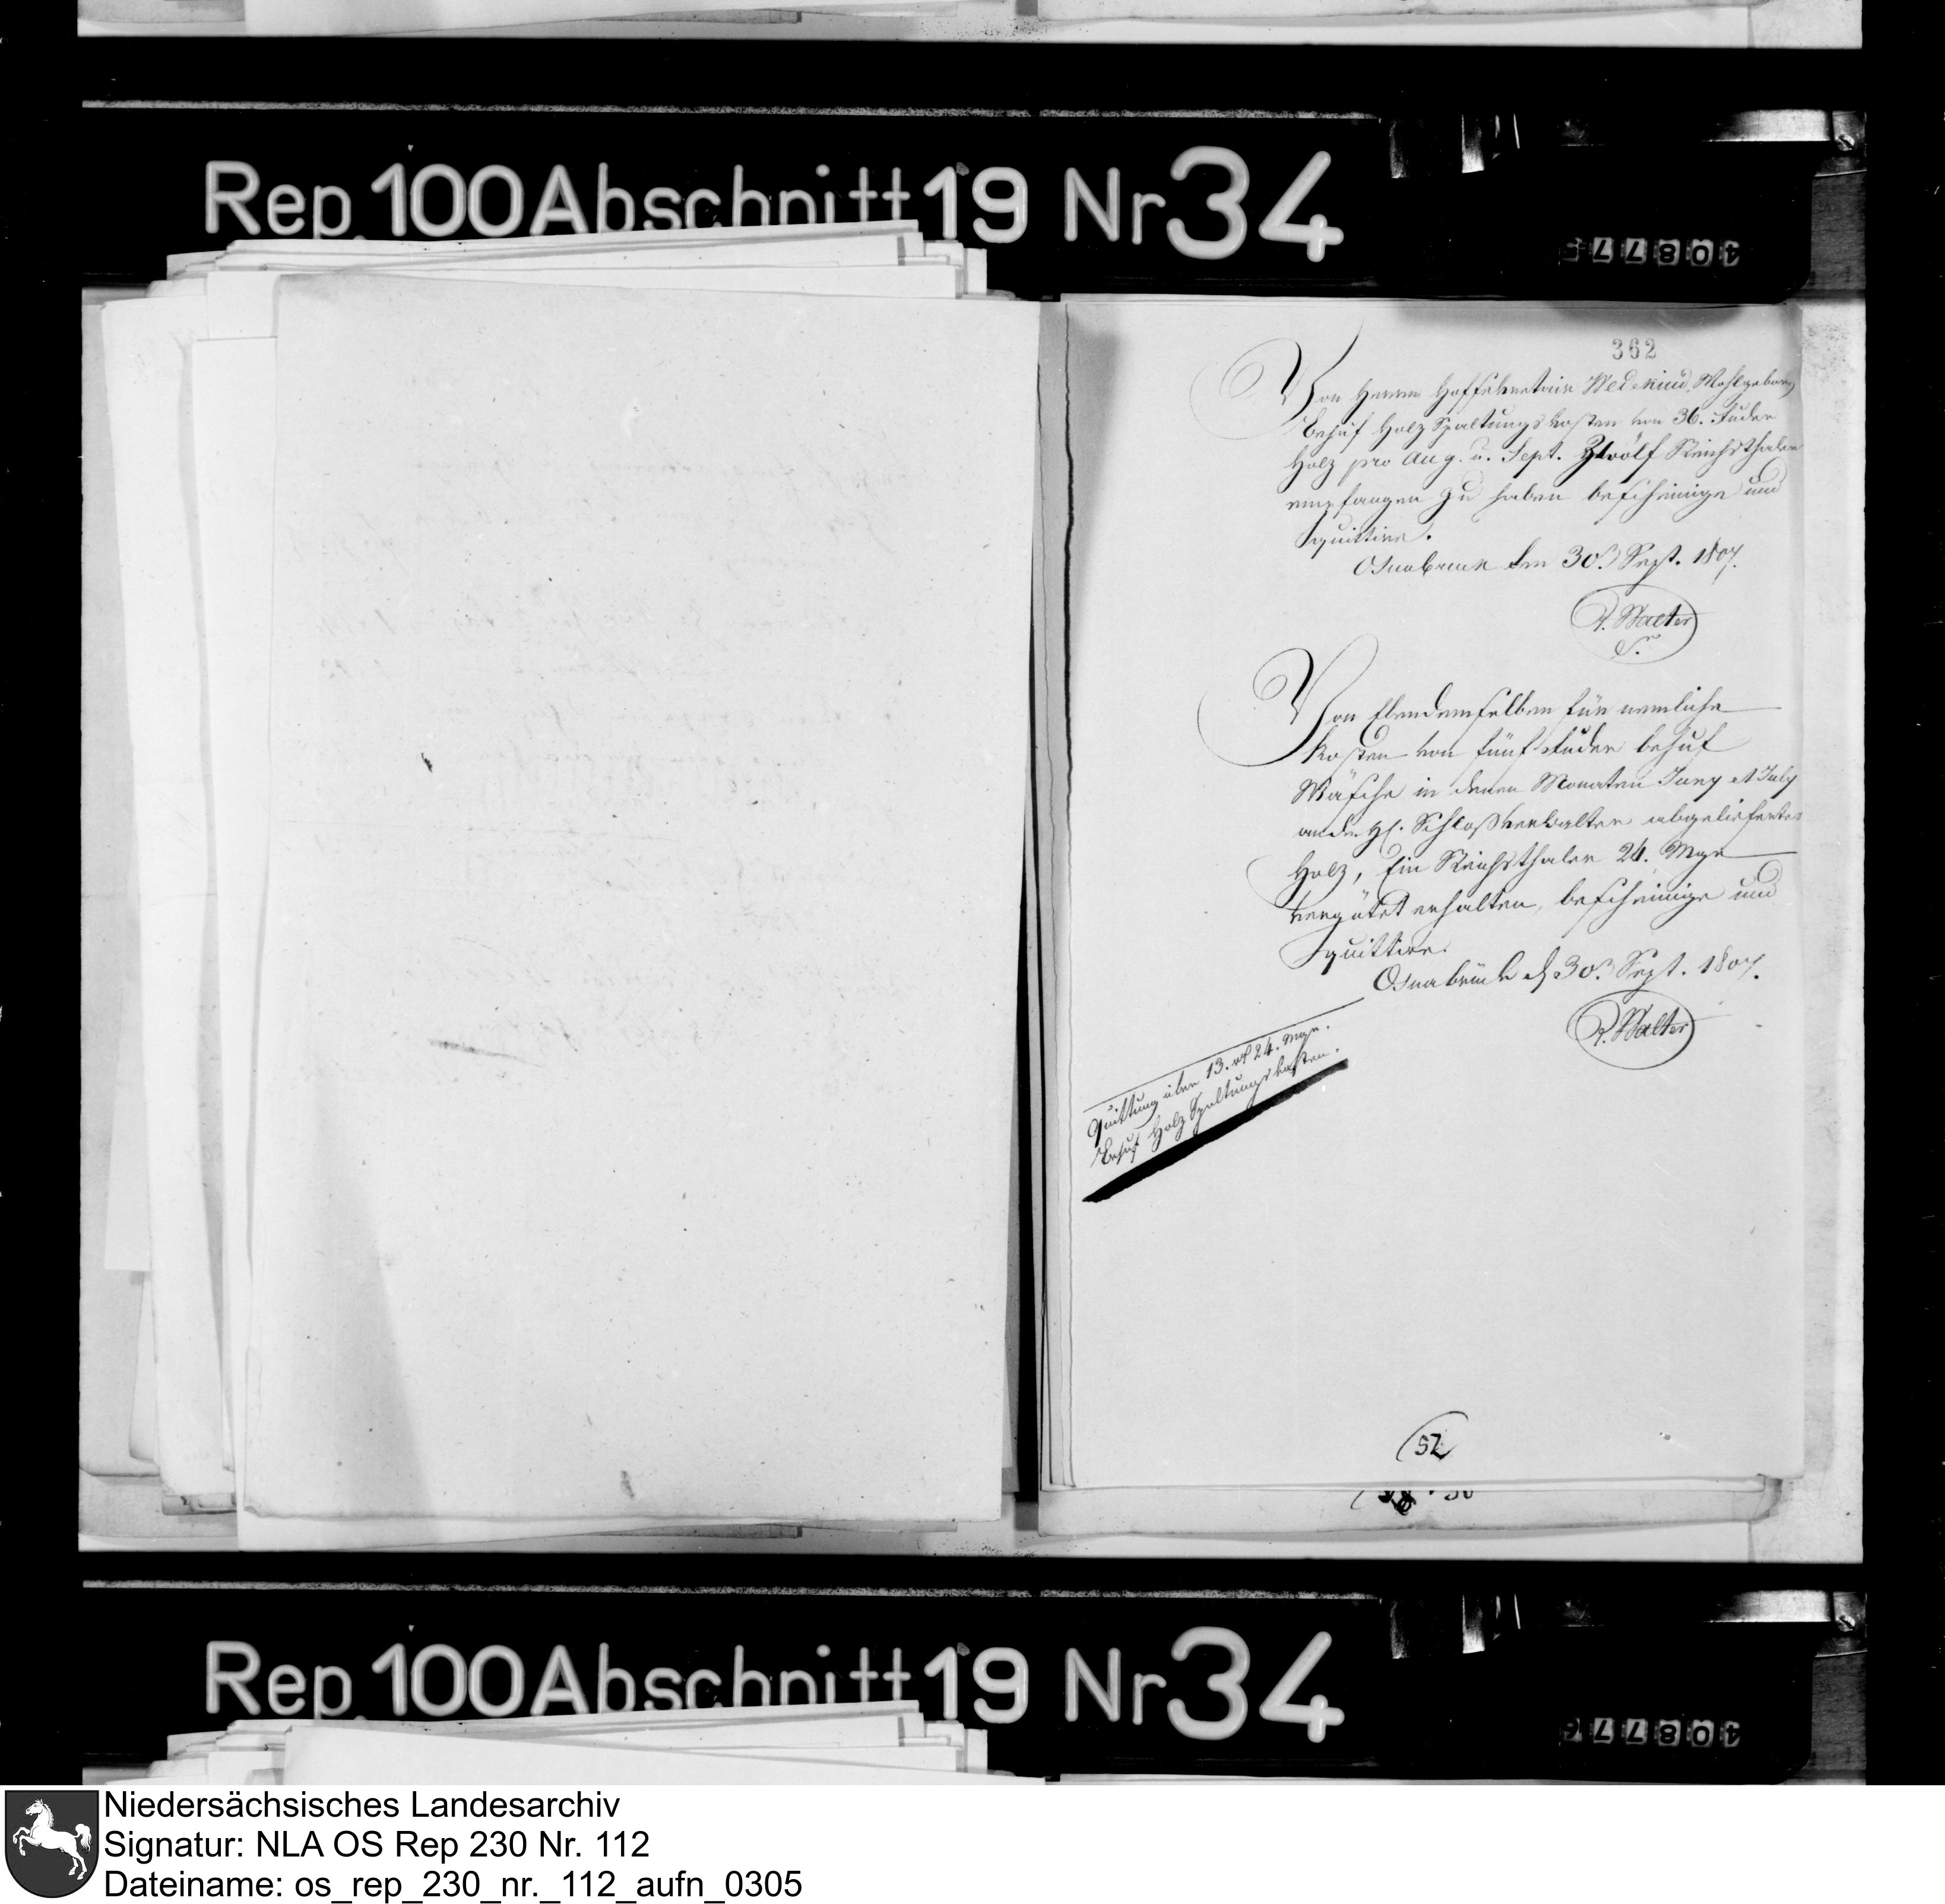 Rep. 100 Abschnitt 19 Nr 34
362
Von Herrn Hofsekretair Wedekind, Wohlgeboren,
Behuf Holz Spaltungskosten von 36. Fuder
Holz pro Aug. u. Sept. Zwölf Reichsthaler
empfangen zu haben bescheinige und
quittire.
Osnabruck den 30. Sept. 1807.
Walter
Von Ebendemselben für nemliche
Kosten von fünf Fuder behuf
Wäsche in denen Monaten Juny et July
an den H. Schloßverwalter abgeliefertes
Holz, Ein Reichsthaler 24. Mgr
vergütet erhalten, bescheinige und
quittire.
Osnabrück d 30. Sept. 1807.
Walter
Quittung über 13. rt 24. Mgr.
Behuf Holz Spaltungskosten.
52
Rep. 100 Abschnitt 19 Nr 34
Niedersächsisches Landesarchiv
Signatur: NLA OS Rep 230 Nr. 112
Dateiname: os_rep_230_nr._112_aufn_0305